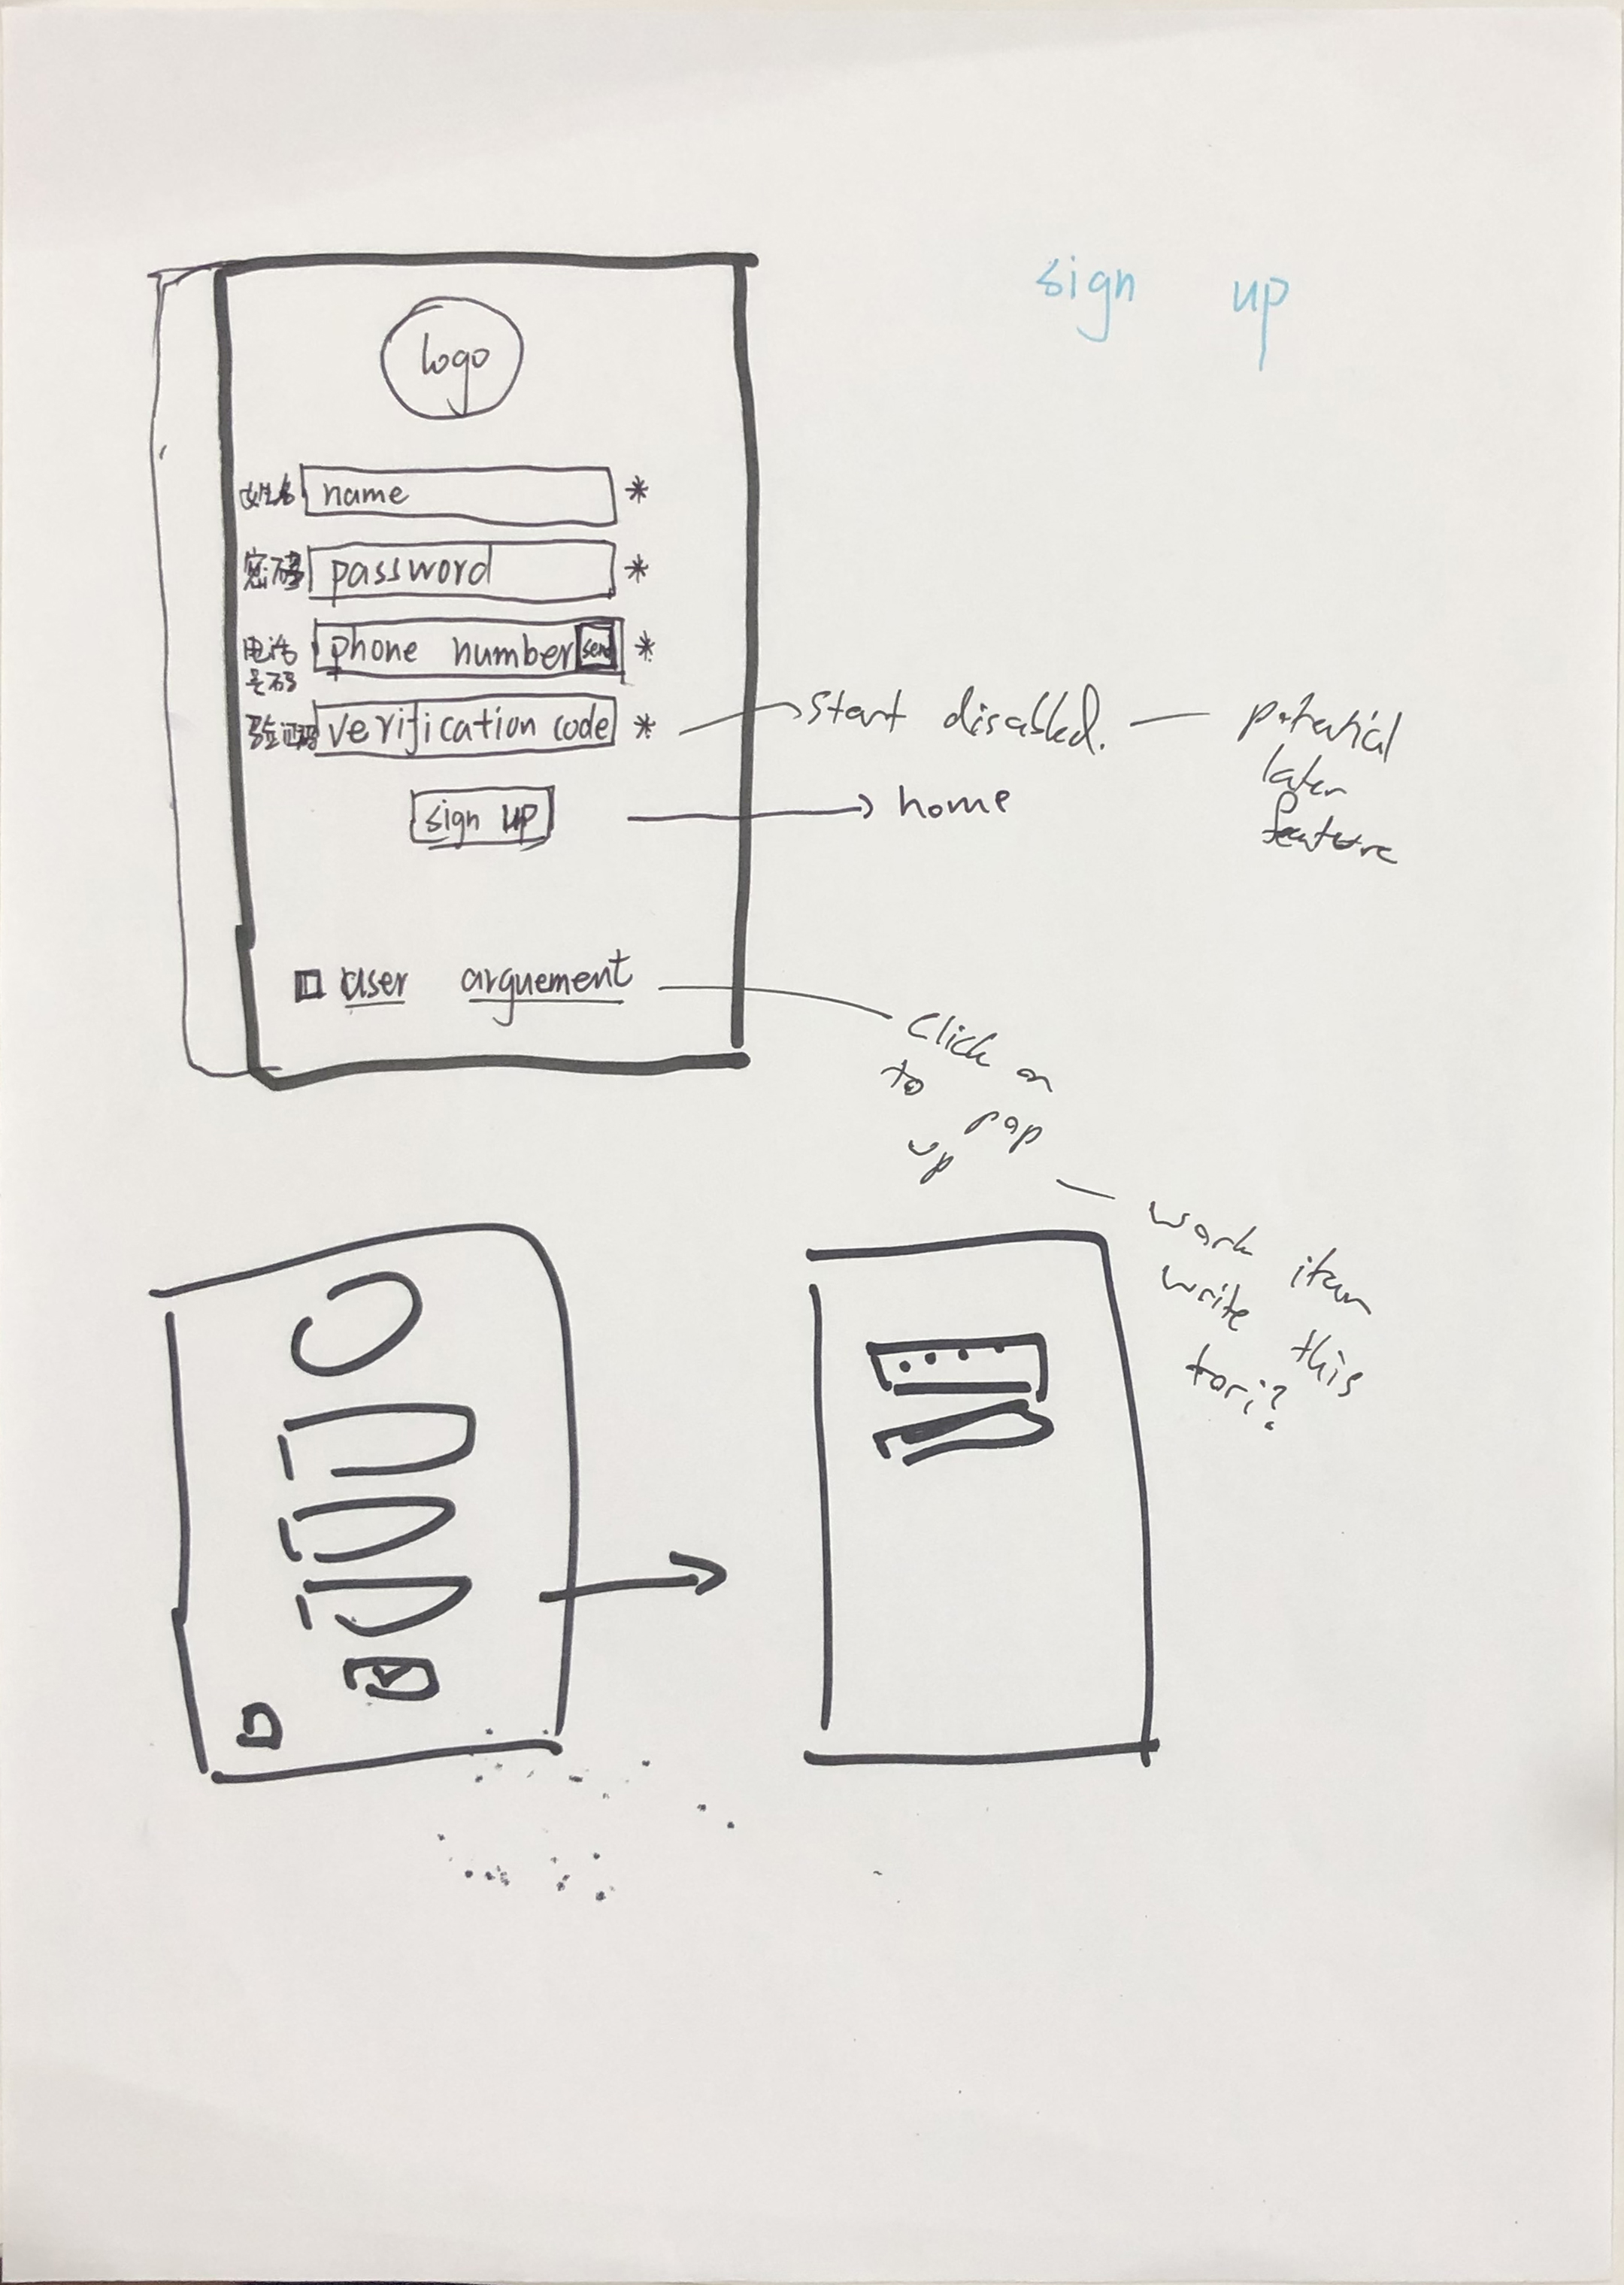 sign up
logo
姓名 name *
密码 password *
电话号码 phone number send *
验证码 verification code *
start disabled. — potential
later
feature
sign up
home
user arguement
Click on
to pop
up
work item
write this